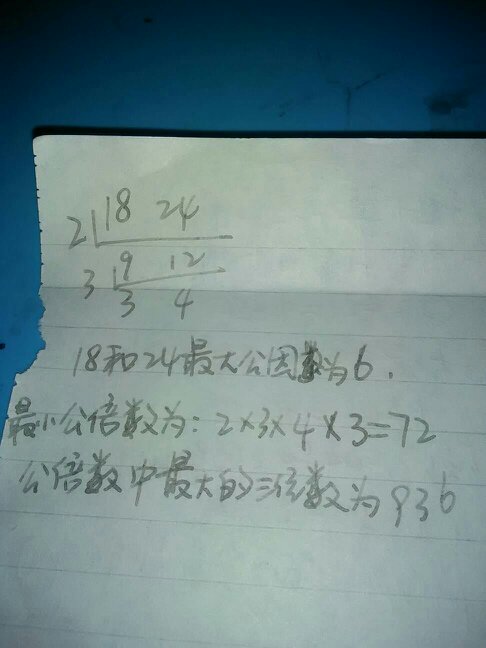 2 18 24
3 9 12
3 4
18和24最大公因数为6.
最小公倍数为:2×3×4×3=72
公倍数中最大的三位数为936